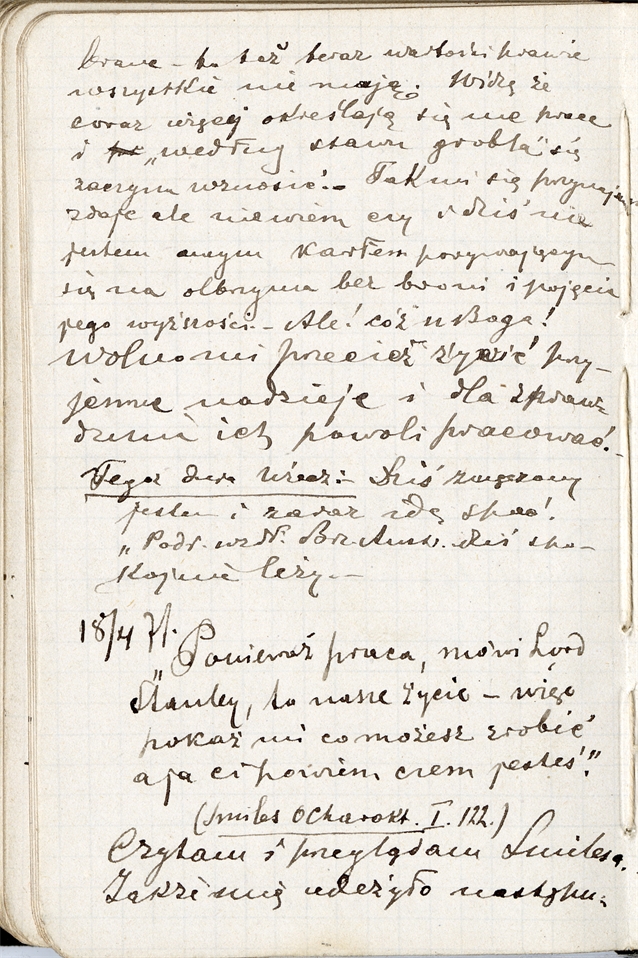 brane – to też teraz wartości prawie
wszystkie nie mają. Widzę że
coraz więcej określają się me prace
i „według stawu grobla" się
zaczyna wznosić. – Tak mi się przynajmn
zdaje ale niewiem czy i dziś nie
jestem owym karłem porywającym
się na olbrzyma bez broni i pojęcia
jego wyższości. – Ale! cóż u Boga!
Wolno mi przecież żywić przy-
jemne nadzieje i dla spraw-
dzenia ich powoli pracować. –
Tegoż dnia wiecz: – Dziś zmęczony
jestem i zaraz idę spać.
„Podr. wzdł. Austr. dziś spo-
kojnie leży. –
18/4 71.
„Ponieważ praca, mówi Lord
Stanley, to nasze życie – więc
pokaż mi co możesz zrobić
a ja ci powiem czem jesteś."
(Smiles O Charakt. I. 122.)
Czytam i przeglądam Smilesa.
Także mię uderzyło następu-